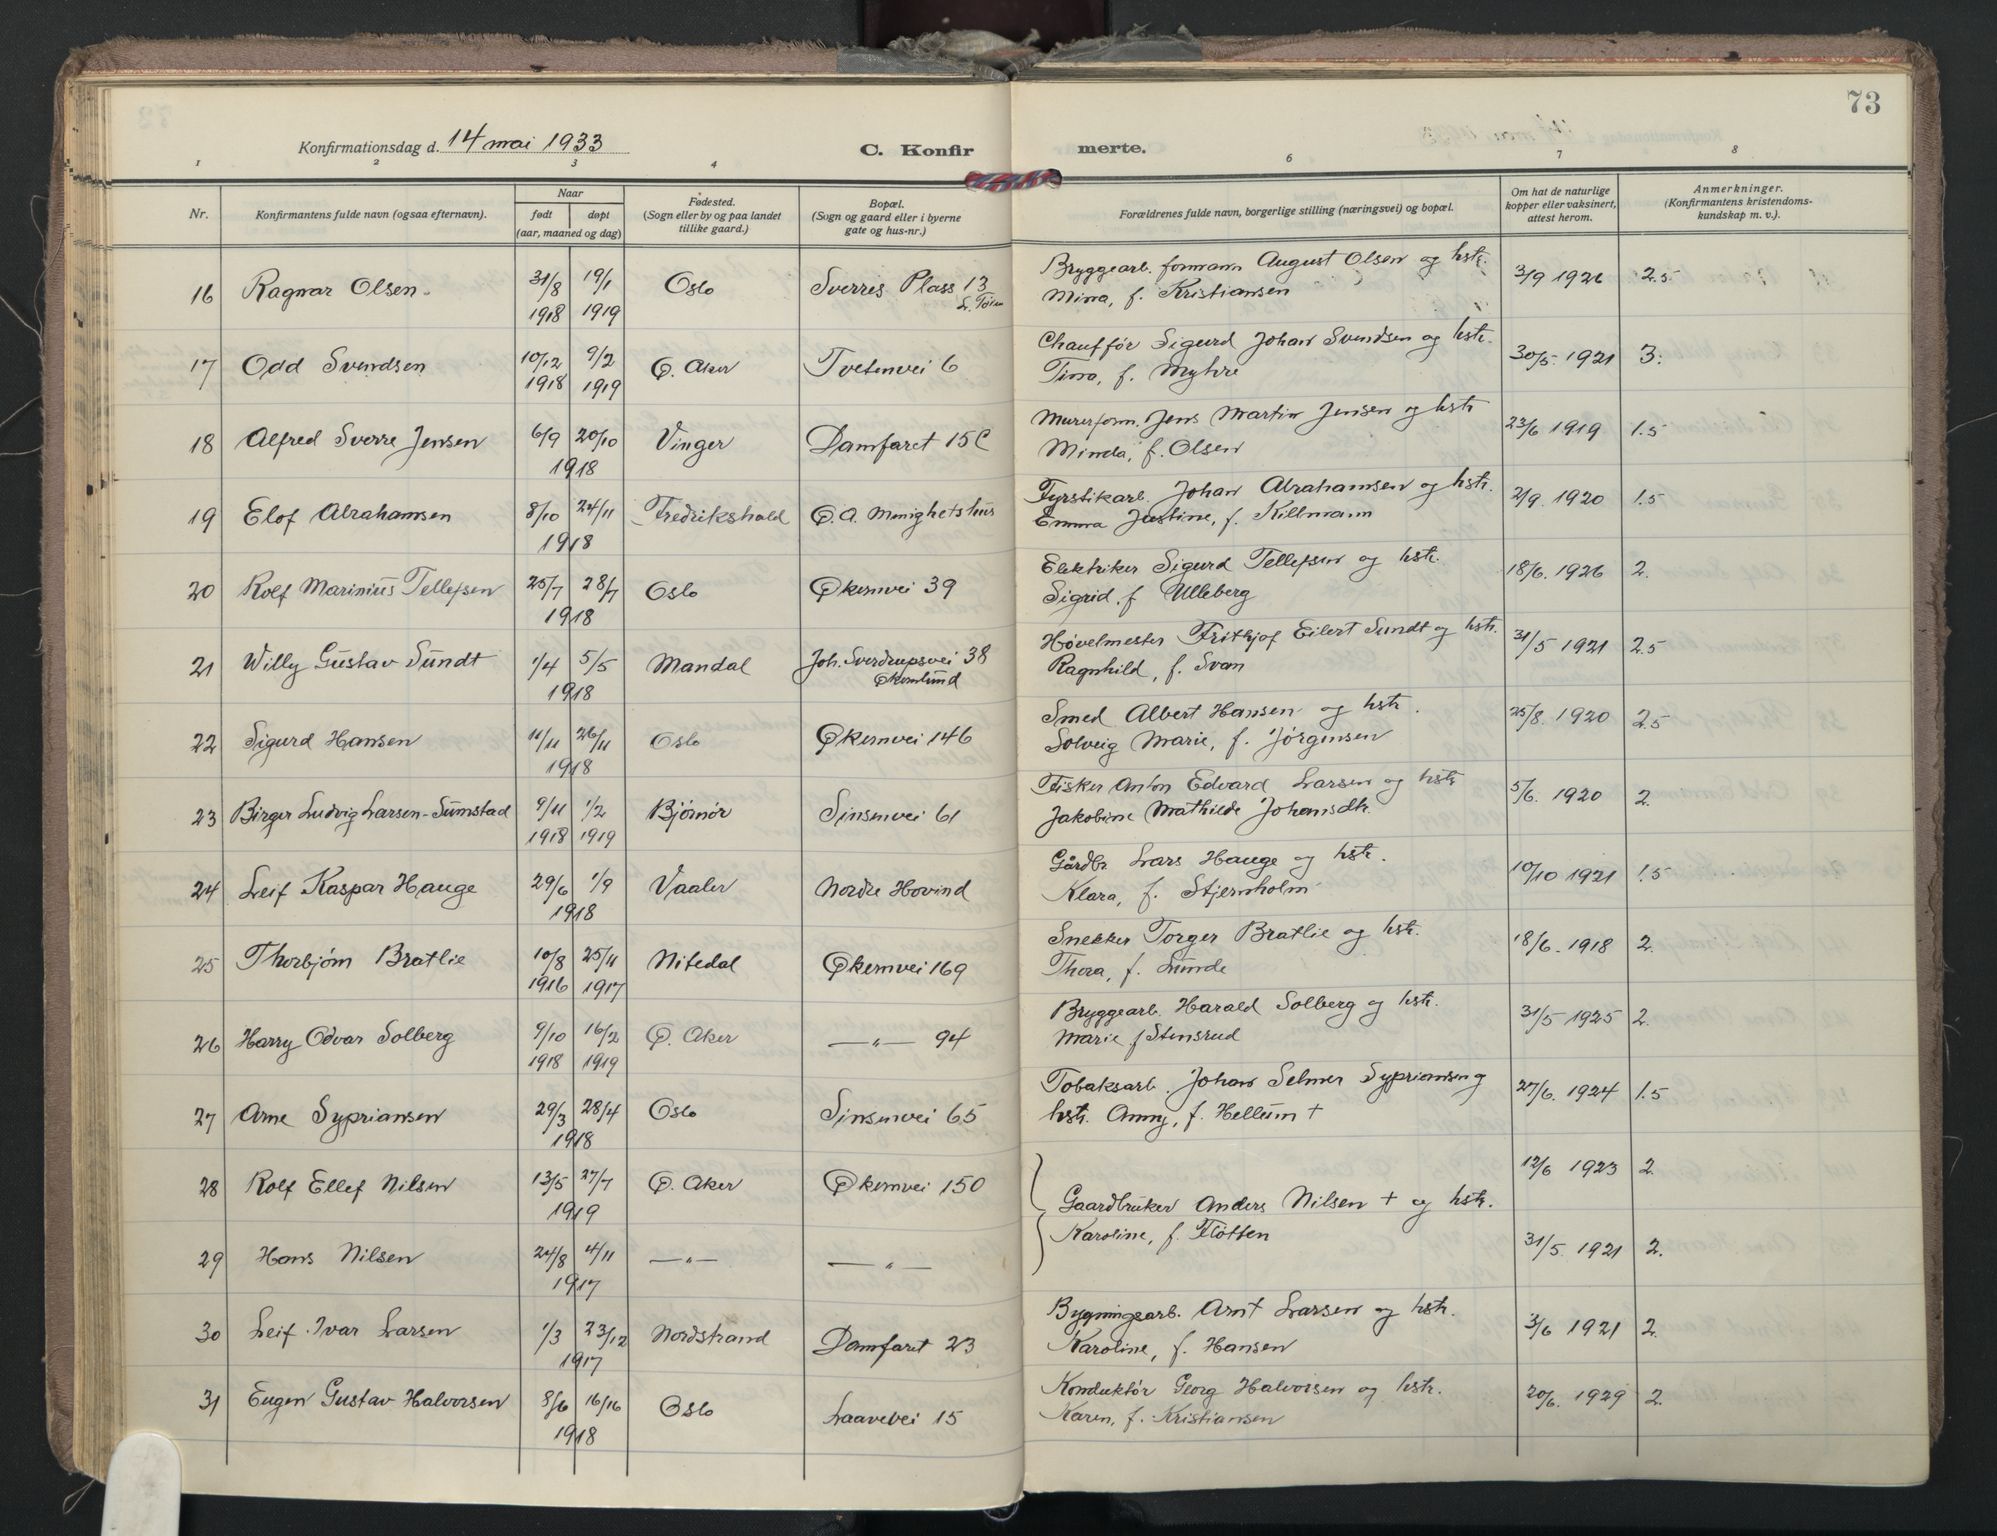 73
Konfirmationsdag d. 14 mai 1933
C. Konfirmerte.
1 2 3 4 6 7 8
Nr. Konfirmantens fulde navn (ogsaa efternavn). Naar født døpt (aar, maaned og dag) Fødested. (Sogn eller by og paa landet tillike gaard.) Bopæl. (Sogn og gaard eller i byerne gate og hus-nr.) Forældrenes fulde navn, borgerlige stilling (næringsvei) og bopæl. Om hat de naturlige kopper eller vaksinert, attest herom. Anmerkninger. (Konfirmantens kristendomskundskap m. v.)
16 Ragnar Olsen. 31/8 1918 19/1 1919 Oslo Sverres Plass 13 L. Tøien Bryggearb. formann August Olsen og hstr. Minna, f. Kristiansen 3/9 1926 2.5
17 Odd Svendsen 10/12 1918 9/2 1919 Ø. Aker Tvetenvei 6 Chauffør Sigurd Johan Svendsen og hstr. Tina, f. Myhre 30/5. 1921 3.
18 Alfred Sverre Jensen 6/9 20/10 1918 Vinger Damfaret 15C Murerform. Jens Martin Jensen og hstr Minda, f. Olsen 23/6 1919 1.5
19 Elof Abrahamsen 8/10 24/11 1918 Fredrikshald Ø.A. Menighetshus Fyrstikarb. Johan Abrahamsen og hstr. Emma Justine, f. Killmann 2/9. 1920 1.5
20 Rolf Marinius Tellefsen 25/7 28/7 1918 Oslo Økernvei 39 Elektriker Sigurd Tellefsen og hstr. Sigrid. f Ulleberg 18/6. 1926 2.
21 Willy Gustav Sundt 1/4 5/5 1918 Mandal Joh. Sverdrupsvei 38 Økernlund Høvelmester Frithjof Eilert Sundt og hstr. Ragnhild, f. Svan 31/5 1921 2.5
22 Sigurd Hansen 11/11 26/11 1918 Oslo Økernvei 146 Smed Albert Hansen og hstr. Solveig Marie, f. Jørgensen 25/8. 1920 2.5
23 Birger Ludvig Larsen-Sumstad 9/11 1918 1/2 1919 Bjørnør Sinsenvei 61 Fisker Anton Edvard Larsen og hstr Jakobine Mathilde Johansdtr. 5/6. 1920 2.
24 Leif Kaspar Hauge 29/6 1/9 1918 Vaaler Nordre Hovind Gårdbr Lars Hauge og hstr. Klara, f. Stjernholm 10/10 1921 1.5
25 Thorbjørn Bratlie 10/8 1916 25/11 1917 Nitedal Økernvei 169 Snekker Torger Bratlie og hstr. Thora, f. Lunde 18/6. 1918 2.
26 Harry Odvar Solberg 9/10 1918 16/2 1919 Ø. Aker —"— 94 Bryggearb. Harald Solberg og hstr. Marie f Stensrud 31/5 1925 2.
27 Arne Sypriansen 29/3 28/4 1918 Oslo Sinsenvei 65 Tobaksarb. Johan Selmer Sypriansen og hstr. Anny, f. Hellum + 27/6. 1924 1.5
28 Rolf Ellef Nilsen 13/5 27/7 1919 Ø. Aker Økernvei 150 Gaardbruker Anders Nilsen + og hstr. Karoline, f. Fløtten 12/6 1923 2.
29 Hans Nilsen 24/8 4/11 1917 —"— —"— 31/5. 1921 2.
30 Leif Ivar Larsen 1/3 23/12 1917 Nordstrand Damfaret 23 Bygningsarb. Arnt Larsen og hstr. Karoline, f. Hansen 3/6 1921 2.
31 Eugen Gustav Halvorsen 8/6 16/16 1918 Oslo Laavevei 15 Konduktør Georg Halvorsen og hstr. Karen, f. Kristiansen 20/6. 1929 2.